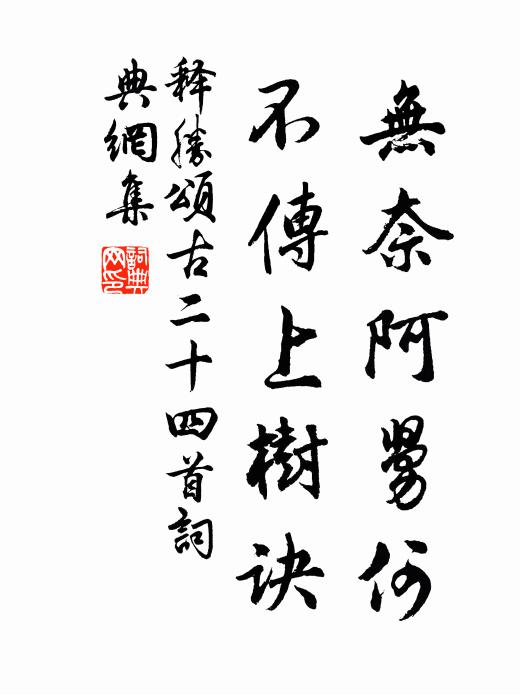 無奈阿舅何
不傳上樹訣
释勝頌古二十四首詞
典網集
詞典網印